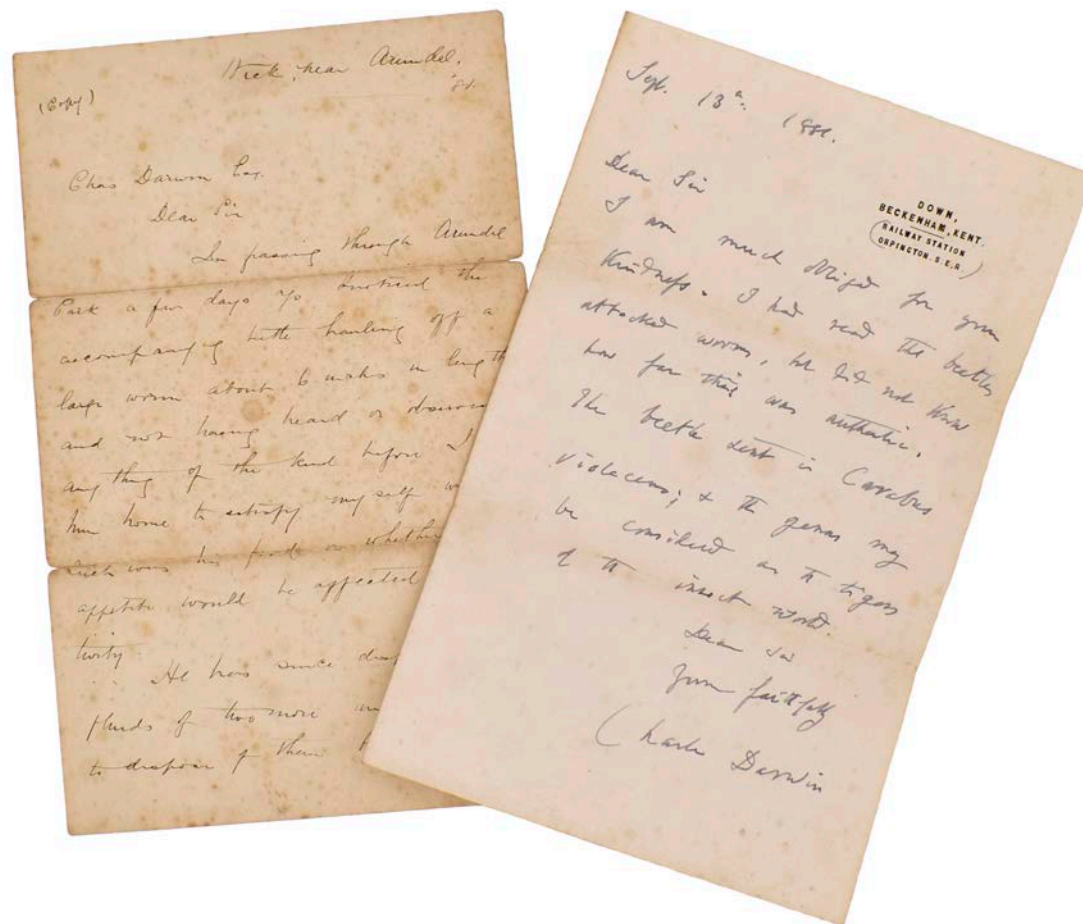 Wick, near Arundel,
'81.
(Copy)
Chas Darwin Esq.
Dear Sir
In passing through Arundel
Park a few days ago I noticed the
accompanying beetle hauling off a
large worm about 6 inches in length
and not having heard or observed
any thing of the kind before I
him home to satisfy myself
such was his food or whether
appetite would be affected
tivity.
He has since
fluids of two more
to dispose of them
Sept. 13th. 1881.
DOWN,
BECKENHAM, KENT.
(RAILWAY STATION
ORPINGTON. S.E.R.)
Dear Sir
I am much obliged for your
kindness. I had read the beetles
attacked worms, but did not know
how far this was authentic.
The beetle sent is Carabus
violaceus; & the genus may
be considered as the tigers
of the insect world.
Dear Sir
Yours faithfully
Charles Darwin